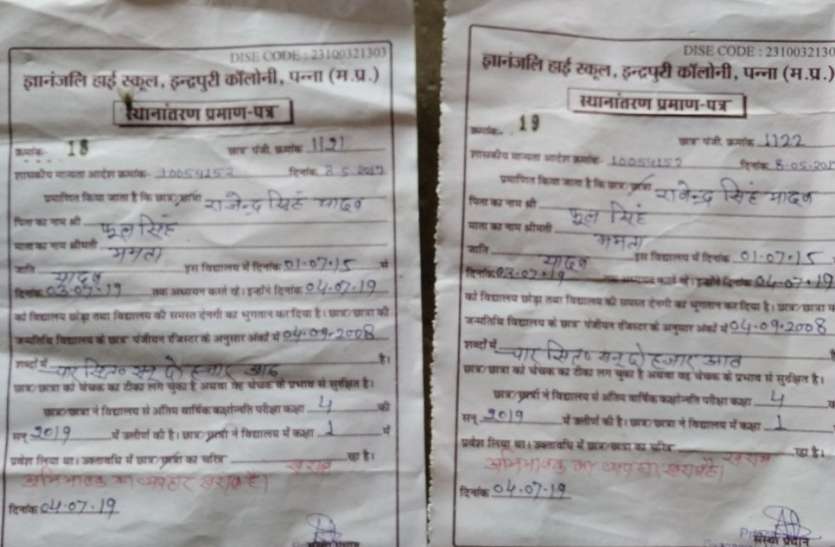 DISE CODE : 23100321303
ज्ञानंजलि हाई स्कूल, इन्द्रपुरी कॉलोनी, पन्ना (म.प्र.)
स्थानांतरण प्रमाण-पत्र
क्रमांक 18 छात्र पंजी. क्रमांक 1121
शासकीय मान्यता आदेश क्रमांक- 10054152 दिनांक 8.5.2017
प्रमाणित किया जाता है कि छात्र/छात्रा राजेन्द्र सिंह यादव
पिता का नाम श्री फूल सिंह
माता का नाम श्रीमती ममता
जाति यादव इस विद्यालय में दिनांक 01-07-15 से
दिनांक 03-07-19 तक अध्ययन करते रहे। इन्होंने दिनांक 04-07-19
को विद्यालय छोड़ा तथा विद्यालय की समस्त देनगी का भुगतान कर दिया है। छात्र/छात्रा की
जन्मतिथि विद्यालय के छात्र पंजीयन रजिस्टर के अनुसार अंकों में 04-09-2008
शब्दों में चार सित० सन् दो हजार आठ है।
छात्र/छात्रा को चेचक का टीका लग चुका है अथवा वह चेचक के प्रभाव से सुरक्षित है।
छात्र/छात्रा ने विद्यालय से अंतिम वार्षिक कक्षोन्नति परीक्षा कक्षा 4 की
सन् 2019 में उत्तीर्ण की है। छात्र/छात्रा ने विद्यालय में कक्षा 1 में
प्रवेश लिया था। उक्तावधि में छात्र/छात्रा का चरित्र खराब रहा है।
अभिभावक का व्यवहार खराब है।
दिनांक 04-07-19
DISE CODE : 2310032130
ज्ञानंजलि हाई स्कूल, इन्द्रपुरी कॉलोनी, पन्ना (म.प्र.)
स्थानांतरण प्रमाण-पत्र
क्रमांक- 19 छात्र पंजी. क्रमांक 1122
शासकीय मान्यता आदेश क्रमांक- 10054152 दिनांक 8-05-201
प्रमाणित किया जाता है कि छात्र/छात्रा राजेन्द्र सिंह यादव
पिता का नाम श्री फूल सिंह
माता का नाम श्रीमती ममता
जाति यादव इस विद्यालय में दिनांक 01-07-15
दिनांक 03-07-19 तक अध्ययन करते रहे। इन्होंने दिनांक 04-07-19
को विद्यालय छोड़ा तथा विद्यालय की समस्त देनगी का भुगतान कर दिया है। छात्र/छात्रा की
जन्मतिथि विद्यालय के छात्र पंजीयन रजिस्टर के अनुसार अंकों में 04-09-2008
शब्दों में चार सित० सन् दो हजार आठ
छात्र/छात्रा को चेचक का टीका लग चुका है अथवा वह चेचक के प्रभाव से सुरक्षित है।
छात्र/छात्रा ने विद्यालय से अंतिम वार्षिक कक्षोन्नति परीक्षा कक्षा 4
सन् 2019 में उत्तीर्ण की है। छात्र/छात्रा ने विद्यालय में कक्षा 1
प्रवेश लिया था। उक्तावधि में छात्र/छात्रा का चरित्र खराब रहा है।
अभिभावक का व्यवहार खराब है।
दिनांक 04-07-19
संस्था प्रधान